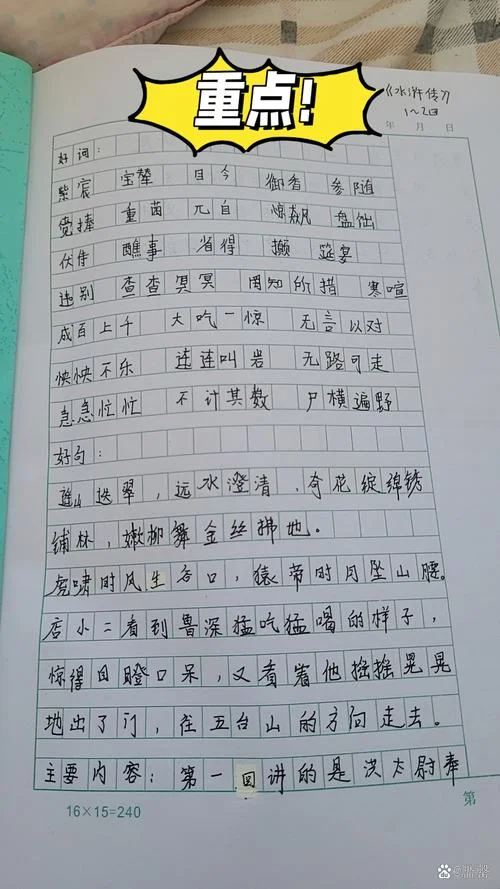 重点!
《水浒传》
1~2回
年 月 日
好词:
紫宸 宝辇 目今 御香 参随
凳捧 重茵 兀自 惊飙 盘饳
伏侍 醮事 省得 攧 筵宴
违别 查查冥冥 罔知所措 寒喧
成百上千 大吃一惊 无言以对
怏怏不乐 连连叫岩 无路可走
急急忙忙 不计其数 尸横遍野
好句:
遥山迭翠,远水澄清,奇花绽绵锈
铺林,嫩柳舞金丝拂地。
虎啸时风生谷口,猿啼时月坠山腰。
店小二看到鲁深猛吃猛喝的样子,
惊得目瞪口呆,又看着他摇摇晃晃
地出了门,往五台山的方向走去。
主要内容:第一回讲的是洪太尉奉
16×15=240
第